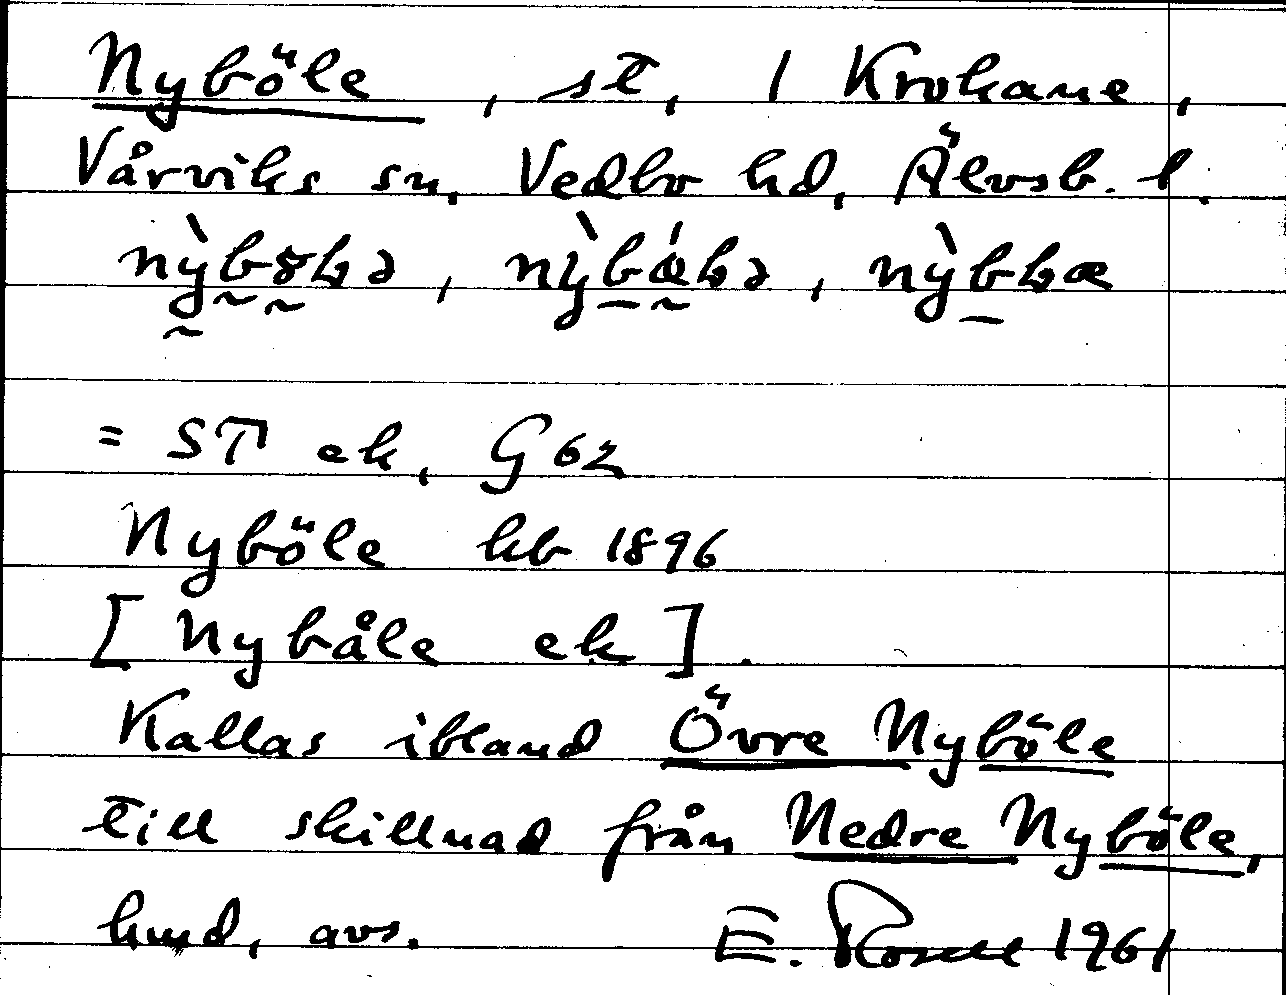 Nyböle, st, / Krokane,
Vårviks sn, Vedbo hd, Älvsb. l.
= ST ek, G 62
Nyböle kb 1896
[Nybåle ek].
Kallas ibland Övre Nyböle
till skillnad från Nedre Nyböle,
hmd, avs. E. 1961